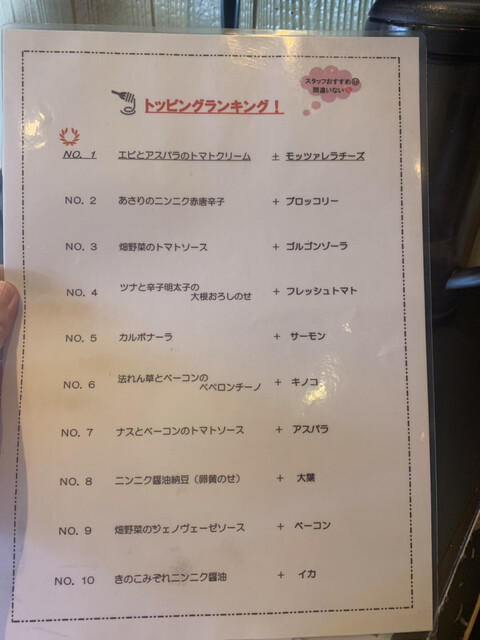 スタッフおすすめ
間違いない
トッピングランキング！
NO. 1 エビとアスパラのトマトクリーム + モッツァレラチーズ
NO. 2 あさりのニンニク赤唐辛子 + ブロッコリー
NO. 3 畑野菜のトマトソース + ゴルゴンゾーラ
NO. 4 ツナと辛子明太子の
大根おろしのせ + フレッシュトマト
NO. 5 カルボナーラ + サーモン
NO. 6 法れん草とベーコンの
ペペロンチーノ + キノコ
NO. 7 ナスとベーコンのトマトソース + アスパラ
NO. 8 ニンニク醤油納豆（卵黄のせ） + 大葉
NO. 9 畑野菜のジェノヴェーゼソース + ベーコン
NO. 10 きのこみぞれニンニク醤油 + イカ